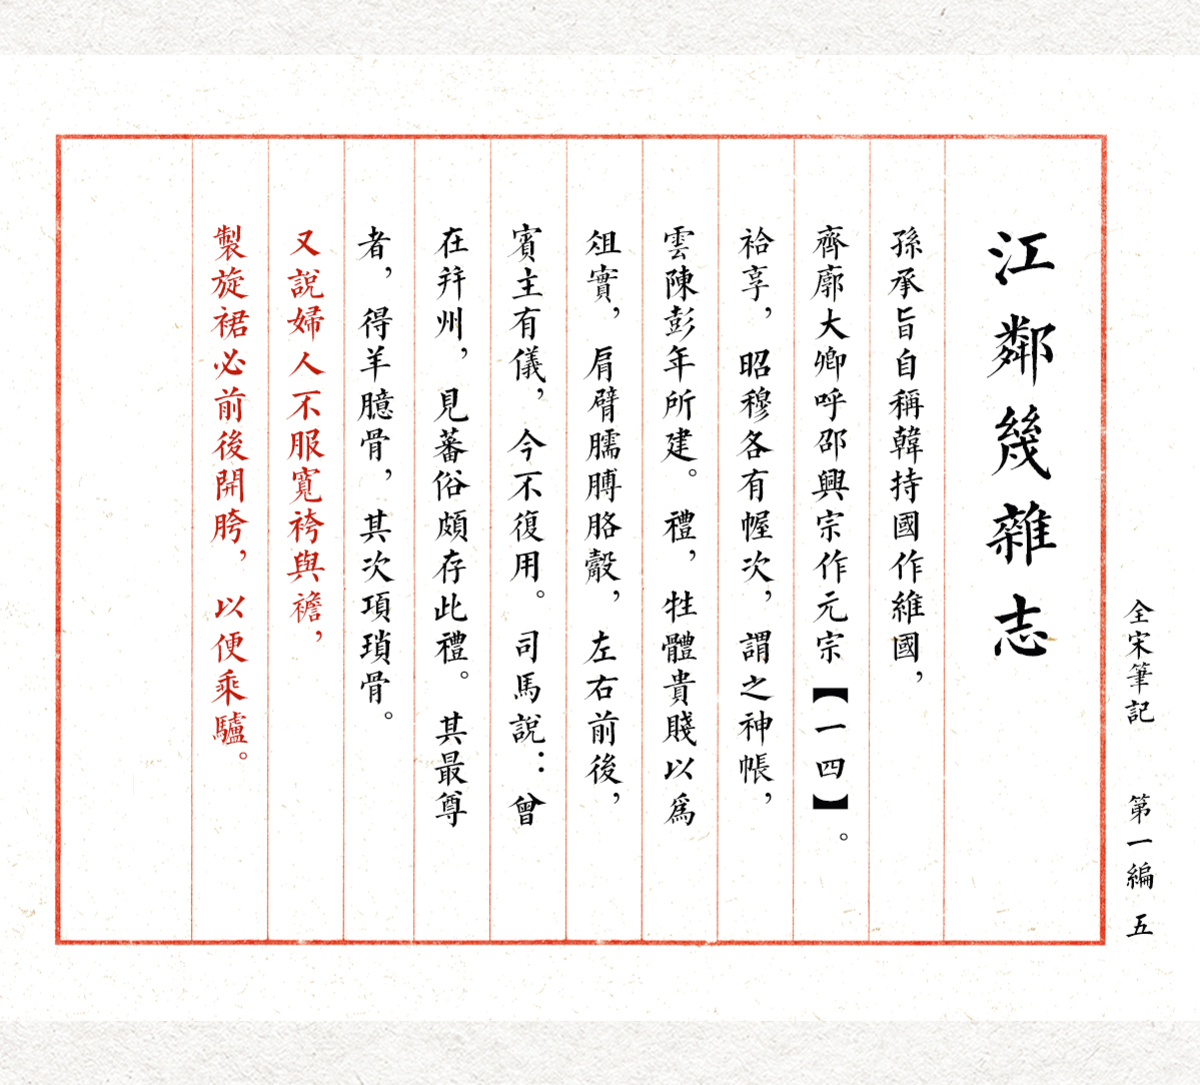 全宋筆記 第一編 五
江鄰幾雜志
孫承旨自稱韓持國作維國,
齊廓大卿呼邵興宗作元宗【一四】。
祫享,昭穆各有幄次,謂之神帳,
雲陳彭年所建。禮,牲體貴賤以爲
俎實,肩臂臑膊胳觳,左右前後,
賓主有儀,今不復用。司馬說:曾
在并州,見蕃俗頗存此禮。其最尊
者,得羊臆骨,其次項瑣骨。
又說婦人不服寬袴與襜,
製旋裙必前後開胯,以便乘驢。